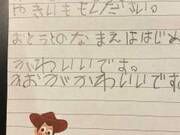 やきいももんだい。
おとうとのなまえははじめ
かわいいです。
おおがかわいいです。